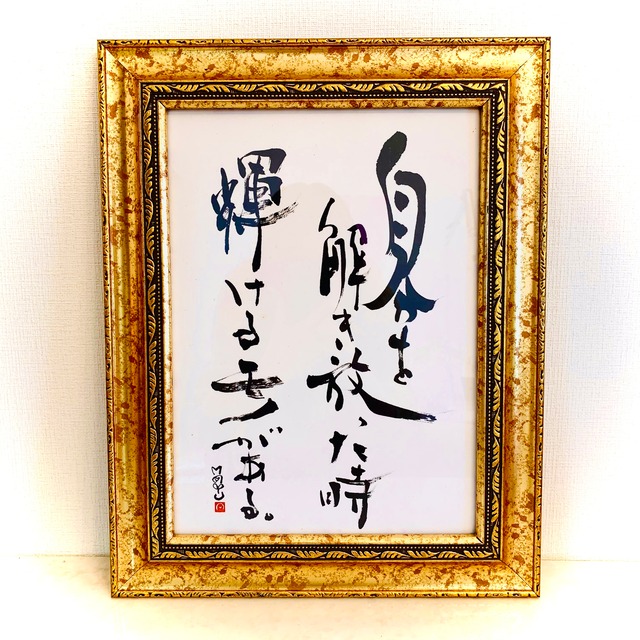 自分を
解き放った時
輝けるモノがある。